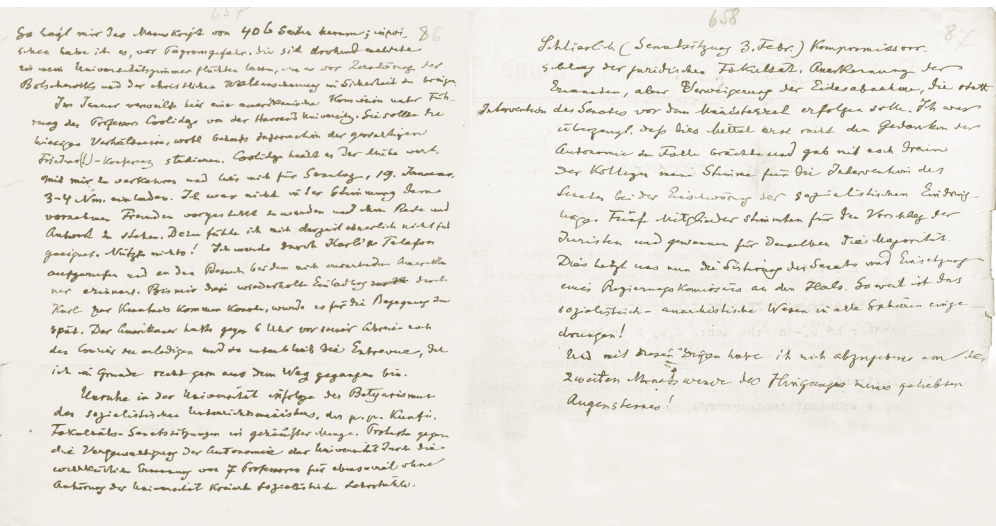 657
86
So liegt mir das Manuskript von 406 Seiten herum; inzwi-
schen habe ich es, vor Pogromgefahr, die sich drohend meldete
in mein Universitätszimmer flüchten lassen, um es vor Zerstörung der
Bolschewists und der christlichen Weltanschauung in Sicherheit zu bringen.
Im Januar verweilte hier eine amerikanische Komission unter Füh-
rung des Professors Coolidge von der Harvard University. Sie sollte die
hiesigen Verhältnisse, wohl behufs Information der großartigen
Friedens(!)-Konferenz studieren. Coolidge hielt es der Mühe wert,
mit mir zu verkehren und lud mich für Sonntag, 19. Januar.
3-4 Nm. einladen. Ich war nicht in der Stimmung dem
vornehmen Fremden vorgestellt zu werden und ihm Rede und
Antwort zu stehen. Dazu fühle ich mich derzeit innerlich nicht für
geeignet. Nützte nichts! Ich werde durch Karl's Telefon
aufgerufen und an den Besuch bei dem mich erwartenden Amerika-
ner erinnert. Bis mir die wiederholte Einladung durch
Karl zur Kenntnis kommen konnte, wurde es für die Begegnung zu
spät. Der Amerikaner hatte gegen 6 Uhr vor seiner Abreise noch
den Courier zu erledigen und so unterblieb die Entrevue, der
ich im Grunde recht gern aus dem Weg gegangen bin.
Unruhe in der Universität infolge des Betyarismus
des sozialistischen Unterrichtsministers, des p.p. Kunfi.
Fakultäts-Senatssitzungen in gehäufter Menge. Proteste gegen
die Vergewaltigung der Autonomie der Universität durch die
willkürliche Ernennung von 7 Professoren für ebensoviel ohne
Anhörung der Universität kreierte sozialistische Lehrstühle.
658
87
Schlierlich (Senatsitzung 3. Febr.) Kompromissvor-
schlag der juridischen Fakultät. Anerkennung der
Ernannten, aber Verweigerung der Eidesabnahme, die statt
Intervention des Senates vor dem Ministerial erfolgen solle. Ich war
überzeugt, daß dies Mittel erst recht den Gedanken der
Autonomie zu Falle brächte und gab mit noch dreien
der Kollegen meine Stimme für die Intervention des
Senates bei der Einschwörung der sozialistischen Eindring-
linge. Fünf Mitglieder stimmten für den Vorschlag der
Juristen und gewannen für denselben die Majorität.
Dies hetzt uns nun die Sistirung des Senats und Einsetzung
eines Regierungskomissärs an den Hals. So weit ist das
sozialistisch-anarchistische Wesen in alle Sphären einge-
drungen!
Und mit diesen Dingen habe ich mich abzugeben an der
zweiten Monatswende des Hinganges meines geliebten
Augensternes!